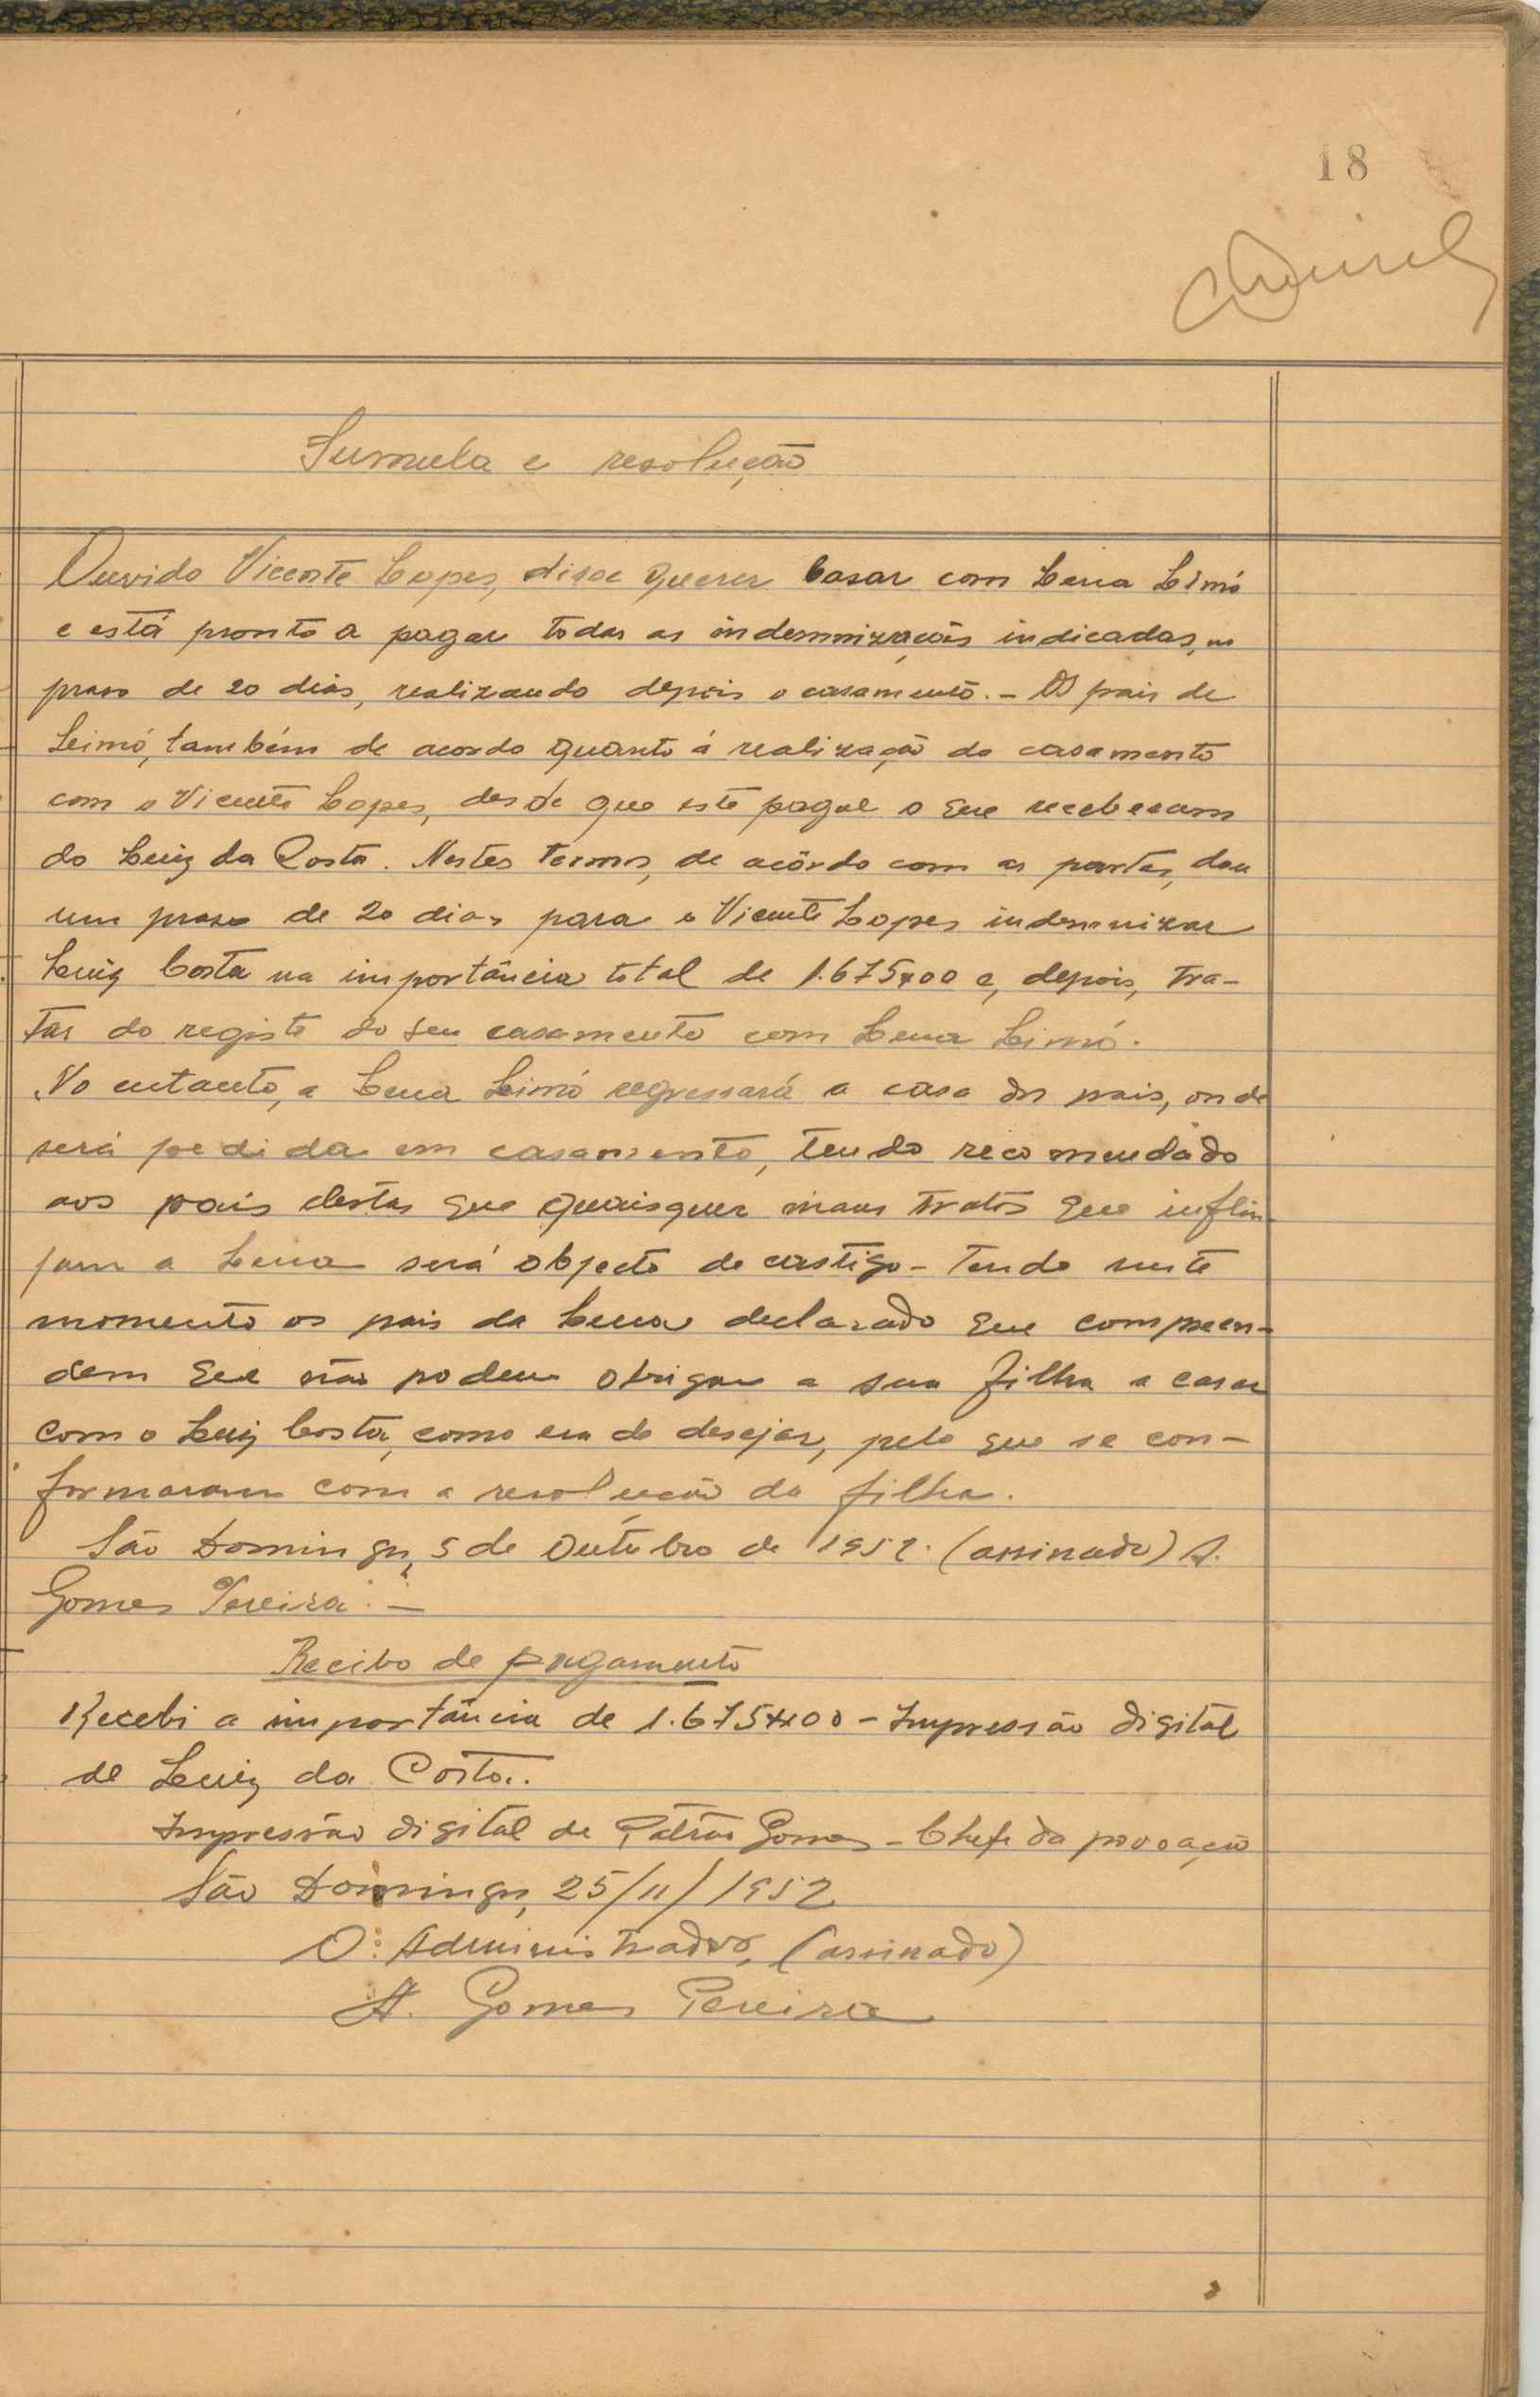 18
Sumula e resolução
Ouvido Vicente Lopes, disse querer casar com Lena Limó
e está pronto a pagar todas as indemnizações indicadas, no
praso de 20 dias, realizando depois o casamento. - Os pais de
Leimó, também de acordo quanto á realização do casamento
com o Vicente Lopes, desde que este pague o que receberam
do Luiz da Costa. Nestes termos, de acôrdo com as partes, dou
um praso de 20 dias para o Vicente Lopes indemnizar
Luiz Costa na importância total de 1.675$00 e, depois, tra-
tar do registo do seu casamento com Lena Limó.
No entanto, a Lena Leimó regressará a casa dos pais, onde
será pedida em casamento, tendo recomendado
aos pais destas que quaisquer maus tratos que inflin-
jam a Lena será objecto de castigo - Tendo neste
momento os pais da Lena declarado que compreen-
dem que não podem obrigar a sua filha a casar
com o Luiz Costa, como era de desejar, pelo que se con-
formaram com a resolução da filha.
São Domingos, 5 de Outubro de 1952. (assinado) A.
Gomes Pereira. -
Recibo de pagamento
Recebi a importância de 1.675$00 - Impressão digital
de Luiz da Costa.
Impressão digital de Gomes - Chefe da povoação
São Domingos, 25/11/1952
O: Administrador, (assinado)
A. Gomes Pereira